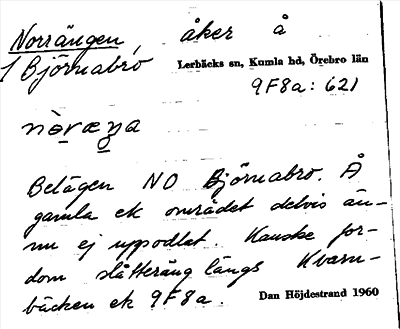 Norrängen, åker å
1 Björnabro Lerbäcks sn, Kumla hd, Örebro län
9F8a: 621
nò̱ræŋa
Belägen NO Björnabro. Å
gamla ek området delvis än-
nu ej uppodlat. Kanske for-
dom slåtteräng längs Kvarn-
bäcken ek 9F8a. Dan Höjdestrand 1960